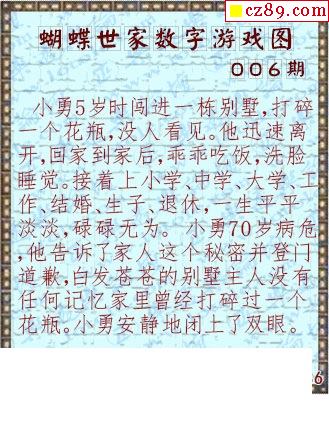 cz89.com
蝴蝶世家数字游戏图
006期
小勇5岁时闯进一栋别墅,打碎
一个花瓶,没人看见。他迅速离
开,回家到家后,乖乖吃饭,洗脸
睡觉。接着上小学、中学、大学、工
作、结婚、生子、退休,一生平平
淡淡,碌碌无为。 小勇70岁病危
,他告诉了家人这个秘密并登门
道歉,白发苍苍的别墅主人没有
任何记忆家里曾经打碎过一个
花瓶。小勇安静地闭上了双眼。
6